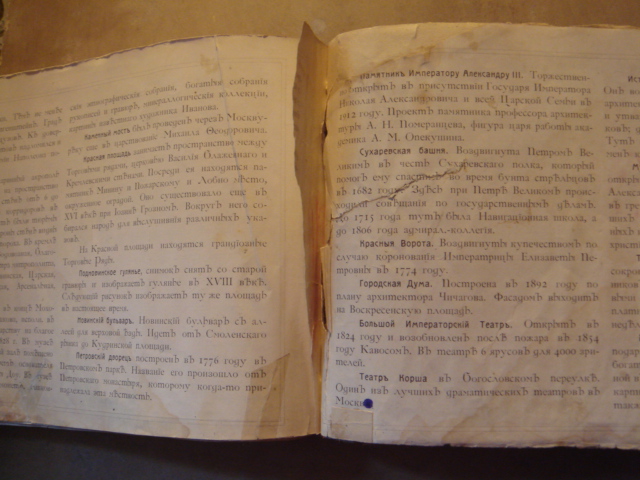 скія этнографическія собранія, богатыя собранія
рукописей и гравюр, минералогическія коллекціи,
картины извѣстнаго художника Иванова.
Каменный мостъ былъ проведенъ черезъ Москву-
рѣку еще въ царствованіе Михаила Ѳеодоровича.
Красная площадь занимаетъ пространство между
Торговыми рядами, церковью Василія Блаженнаго и
Кремлевскими стѣнами. Посреди ея находятся па-
мятникъ Минину и Пожарскому и Лобное мѣсто,
окруженное оградой. Оно существовало еще въ
XVI вѣкѣ при Іоаннѣ Грозномъ. Вокругъ него со-
бирался народъ для выслушиванія различныхъ ука-
зовъ.
На Красной площади находятся грандіозные
Торговые Ряды.
Подновинское гулянье, снимокъ снятъ со старой
гравюры и изображаетъ гулянье въ XVIII вѣкѣ.
Слѣдующій рисунокъ изображаетъ ту же площадь
въ настоящее время.
Новинскій бульваръ. Новинскій бульваръ съ ал-
леей для верховой ѣзды. Идетъ отъ Смоленскаго
рынка до Кудринской площади.
Петровскій дворецъ построенъ въ 1776 году въ
Петровскомъ паркѣ. Названіе его произошло отъ
Петровскаго монастыря, которому когда-то при-
надлежала эта мѣстность.
Памятникъ Императору Александру III. Торжествен-
но открытъ въ присутствіи Государя Императора
Николая Александровича и всей Царской Семьи въ
1912 году. Проектъ памятника профессора архитек-
туры А. Н. Померанцева, фигура царя работы ака-
демика А. М. Опекушина.
Сухаревская башня. Воздвигнута Петромъ Ве-
ликимъ въ честь Сухаревскаго полка, который
помогъ ему спастись во время бунта стрѣльцовъ
въ 1682 году. Здѣсь при Петрѣ Великомъ проис-
ходили совѣщанія по государственнымъ дѣламъ.
До 1715 года тутъ была Навигаціонная школа, а
до 1806 года адмирал.-коллегія.
Красныя Ворота. Воздвигнуты купечествомъ по
случаю коронованія Императрицы Елизаветы Пе-
тровны въ 1774 году.
Городская Дума. Построена въ 1892 году по
плану архитектора Чичагова. Фасадомъ выходитъ
на Воскресенскую площадь.
Большой Императорскій Театръ. Открытъ въ
1824 году и возобновленъ послѣ пожара въ 1854
году Кавосомъ. Въ театрѣ 6 ярусовъ для 4000 зри-
телей.
Театръ Корша въ Богословскомъ переулкѣ.
Одинъ изъ лучшихъ драматическихъ театровъ въ
Москвѣ